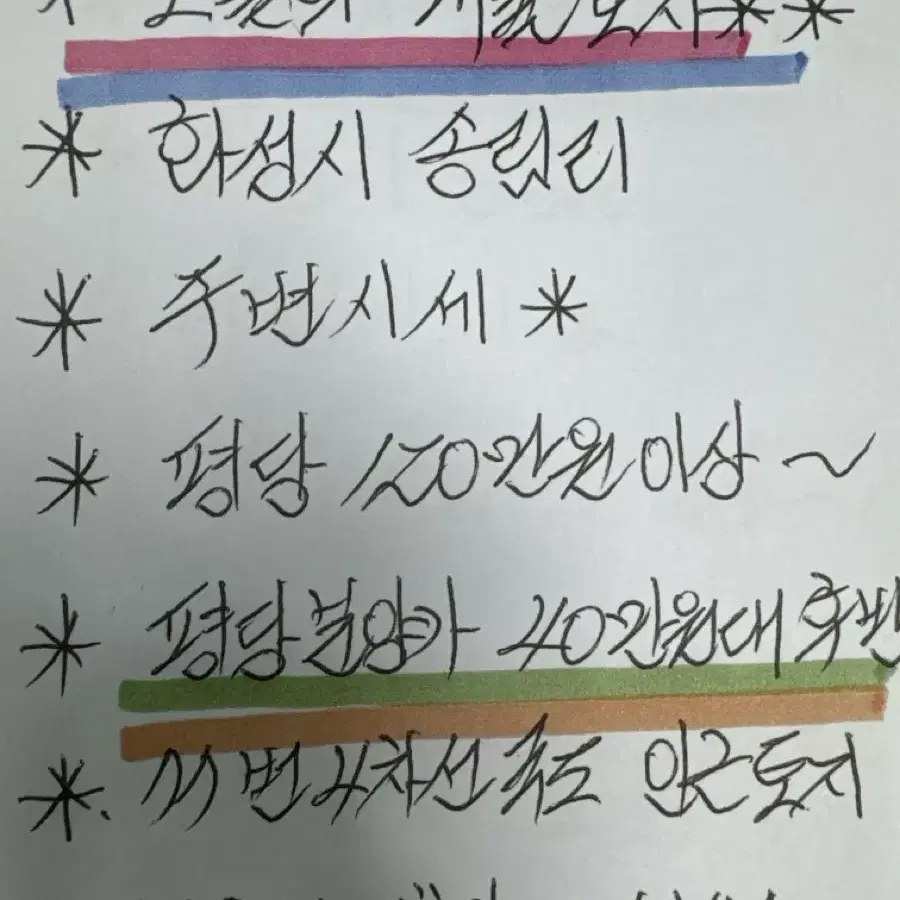 * 화성시 송림리
* 주변시세 *
* 평당 120만원이상 ~
* 평당분양가 40만원대 후반
*. 77번 4차선국도 인근토지